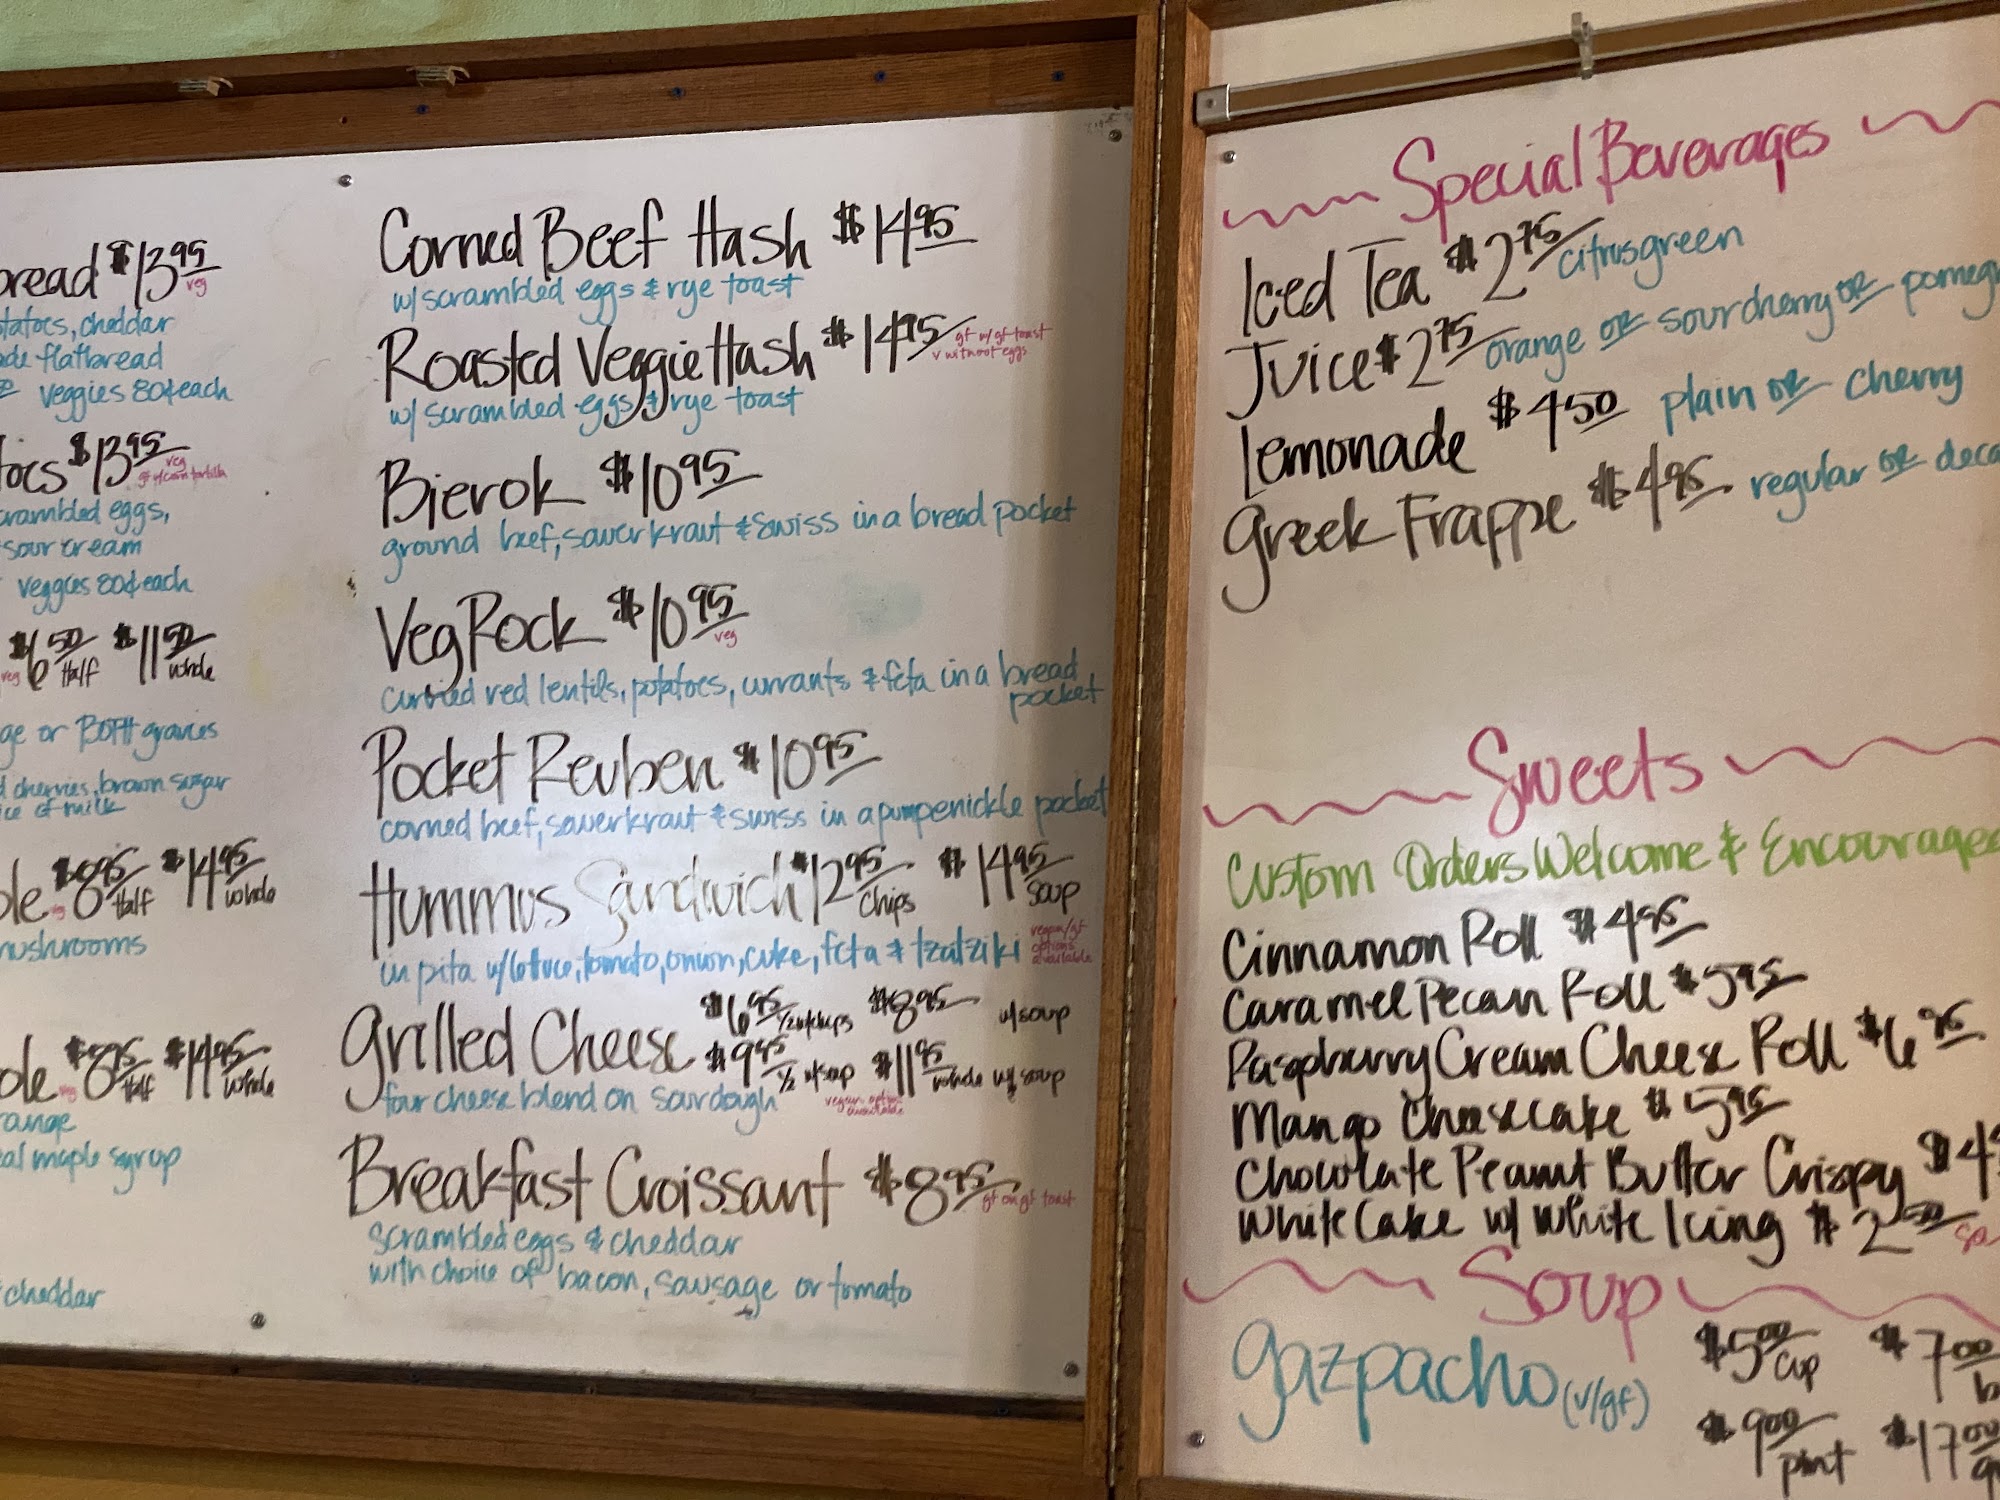 bread $13.95
veg
potatoes, cheddar
flatbread
veggies 80¢ each
$13.95
veg
gf w/corn tortilla
scrambled eggs,
sour cream
veggies 80¢ each
veg $6.50 Half $11.50 whole
or BOTH gravies
cherries, brown sugar
of milk
$8.95 Half $14.95 whole
mushrooms
$8.95 Half $14.95 whole
maple syrup
cheddar
Corned Beef Hash $14.95
w/ scrambled eggs & rye toast
Roasted Veggie Hash $14.95 gf w/ gf toast
v without eggs
w/ scrambled eggs & rye toast
Bierok $10.95
ground beef, sauerkraut & swiss in a bread pocket
Veg Rock $10.95
veg
curried red lentils, potatoes, currants & feta in a bread
pocket
Pocket Reuben $10.95
corned beef, sauerkraut & swiss in a pumpenickle pocket
Hummus Sandwich $12.95 chips $14.95 soup
in pita w/ lettuce, tomato, onion, cuke, feta & tzatziki vegan/gf
options
available
Grilled Cheese $6.95 1/2 w/chips $8.95 w/soup
$9.95 1/2 w/soup $11.95 whole w/ soup
four cheese blend on sourdough vegan option
available
Breakfast Croissant $8.95 gf on gf toast
scrambled eggs & cheddar
with choice of bacon, sausage or tomato
Special Beverages
Iced Tea $2.75 citrus green
Juice $2.75 orange OR sour cherry OR
Lemonade $4.50 plain OR cherry
Greek Frappe $4.95 regular OR
Sweets
Custom Orders Welcome & Encouraged
Cinnamon Roll $4.95
Caramel Pecan Roll $5.95
Raspberry Cream Cheese Roll $6.95
Mango Cheesecake $5.95
Chocolate Peanut Butter Crispy $4
White Cake w/ White Icing $2.50
Soup
gazpacho (v/gf) $5.00 cup $7.00
$9.00 pint $17.00